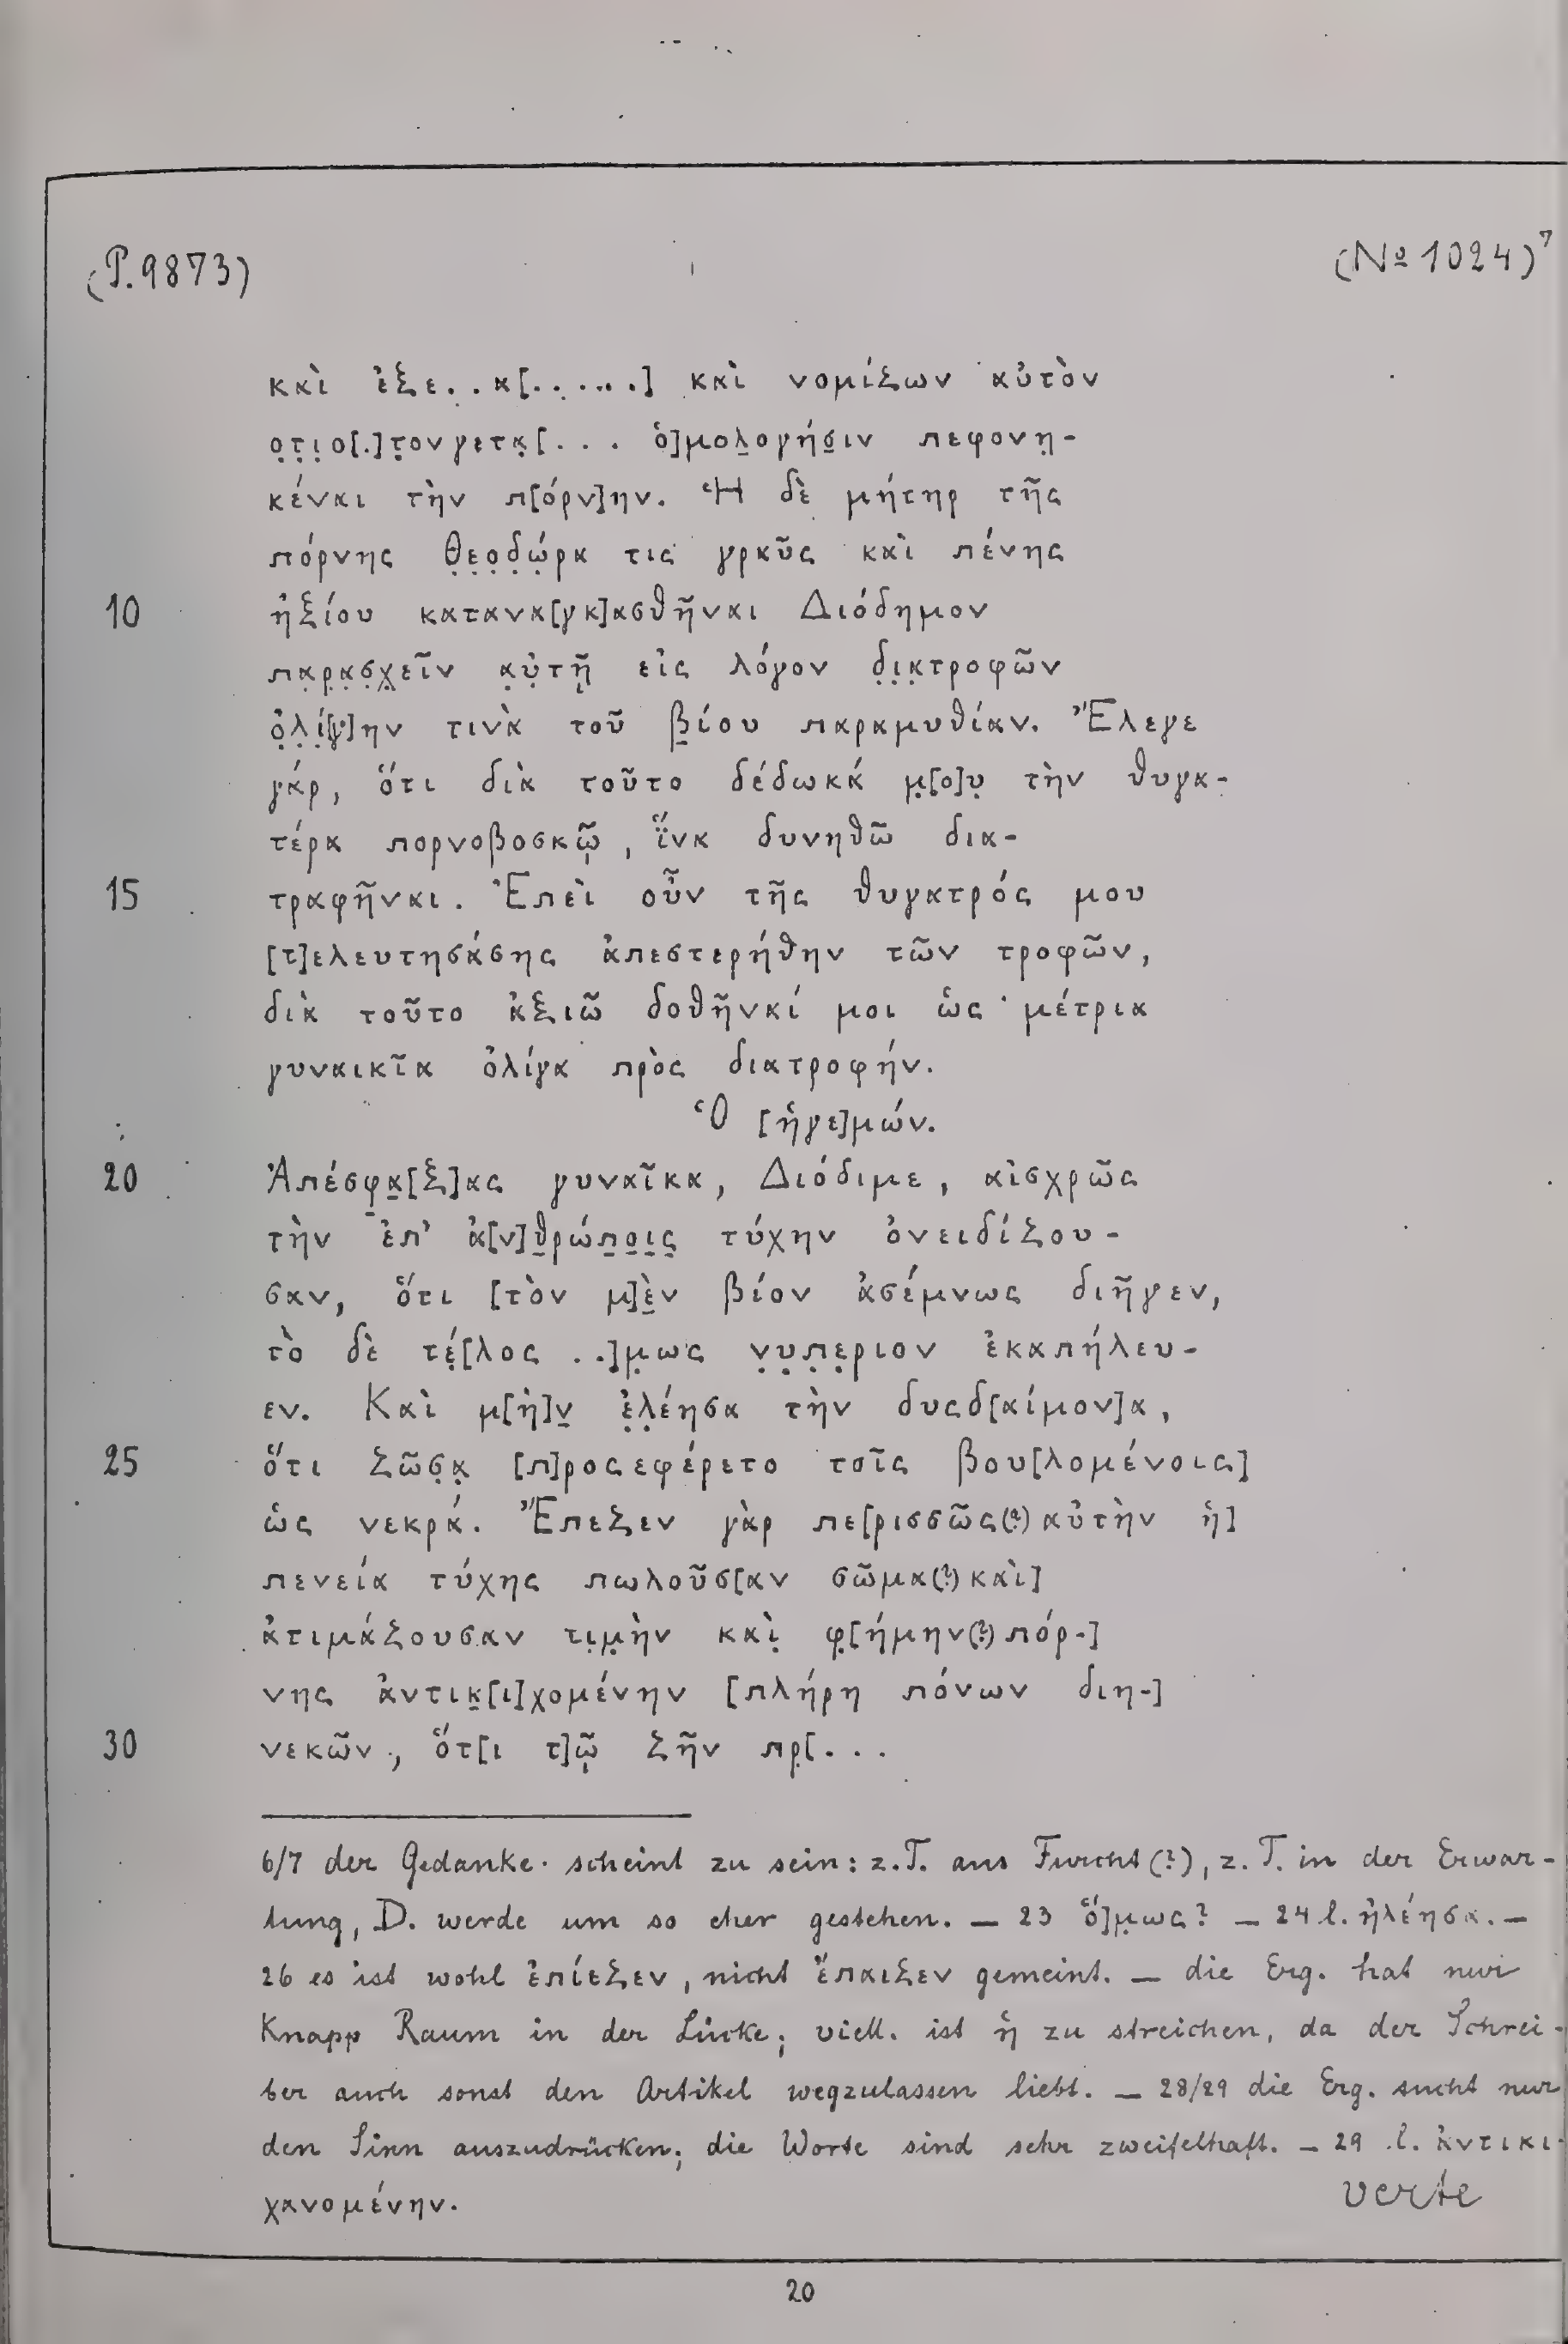 (P. 9873)
(№ 1024)⁷
καὶ ἐξε..α[......] καὶ νομίζων αὐτὸν
ο̣τ̣ι̣ο[.]τ̣ονγετα̣[... ὁ]μολ̣ογήσ̣ιν πεφονη̣-
κέναι τὴν π[όρν]ην. Ἡ δὲ μήτηρ τῆς
πόρνης Θ̣ε̣ο̣δ̣ώ̣ρα τις γραῦς καὶ πένης
10 ἠξίου κατανα[γκ]ασθῆναι Διόδημον
πα̣ρ̣α̣σ̣χ̣εῖν α̣ὐ̣τῇ̣ εἰς λόγον δ̣ι̣α̣τροφῶν
ὀ̣λ̣ί̣[γ]ην τινὰ τοῦ β̣ίου παραμυθίαν. Ἔλεγε
γάρ, ὅτι διὰ τοῦτο δέδωκά μ̣[ο]υ̣ τὴν θυγα-
τέρα πορνοβοσκῷ, ἵ̈να δυνηθῶ δια-
15 τραφῆναι. Ἐπεὶ οὖν τῆς θυγατρός μου
[τ]ελευτησάσης ἀπεστερήθην τῶν τροφῶν,
διὰ τοῦτο ἀξιῶ δοθῆναί μοι ὡς μέτρια
γυναικῖα ὀλίγα πρὸς διατροφήν.
Ὁ [ἡγε]μών.
20 Ἀπέσφα̣[ξ]ας γυναῖκα, Διόδιμε, αἰσχρῶς
τὴν ἐπ' ἀ[ν]θ̣ρώπ̣ο̣ι̣ς̣ τύχην ὀνειδίζου-
σαν, ὅτι [τὸν μ]ὲ̣ν βίον ἀσέμνως διῆγεν,
τὸ δὲ τέ̣[λος ..]μ̣ως ν̣υ̣π̣ε̣ριον ἐκαπήλευ-
εν. Καὶ μ[ὴ]ν̣ ἐ̣λ̣έησα τὴν δυςδ[αίμον]α,
25 ὅτι ζῶσ̣α̣ [π]ροςεφέρετο τοῖς βου[λομένοις]
ὡς νεκρά. Ἔπεζεν γὰρ πε[ρισσῶς(?) αὐτὴν ἡ]
πενεία τύχης πωλοῦσ[αν σῶμα(?) καὶ]
ἀτιμάζουσαν τι̣μ̣ὴν καὶ̣ φ̣[ήμην(?) πόρ-]
νης ἀντικ̣[ι]χομένην [πλήρη πόνων διη-]
30 νεκῶν, ὅτ[ι τ]ῷ ζῆν πρ̣[...
6/7 der Gedanke scheint zu sein: z.T. aus Furcht(?), z.T. in der Erwar-
tung, D. werde um so eher gestehen. – 23 ὅ]μ̣ως? – 24 l. ἠλέησα. –
26 es ist wohl ἐπίεζεν, nicht ἔπαιζεν gemeint. – die Erg. hat nur
knapp Raum in der Lücke; viell. ist ἡ zu streichen, da der Schrei-
ber auch sonst den Artikel wegzulassen liebt. – 28/29 die Erg. sucht nur
den Sinn auszudrücken; die Worte sind sehr zweifelhaft. – 29 l. ἀντικι-
χανομένην.
verte
20